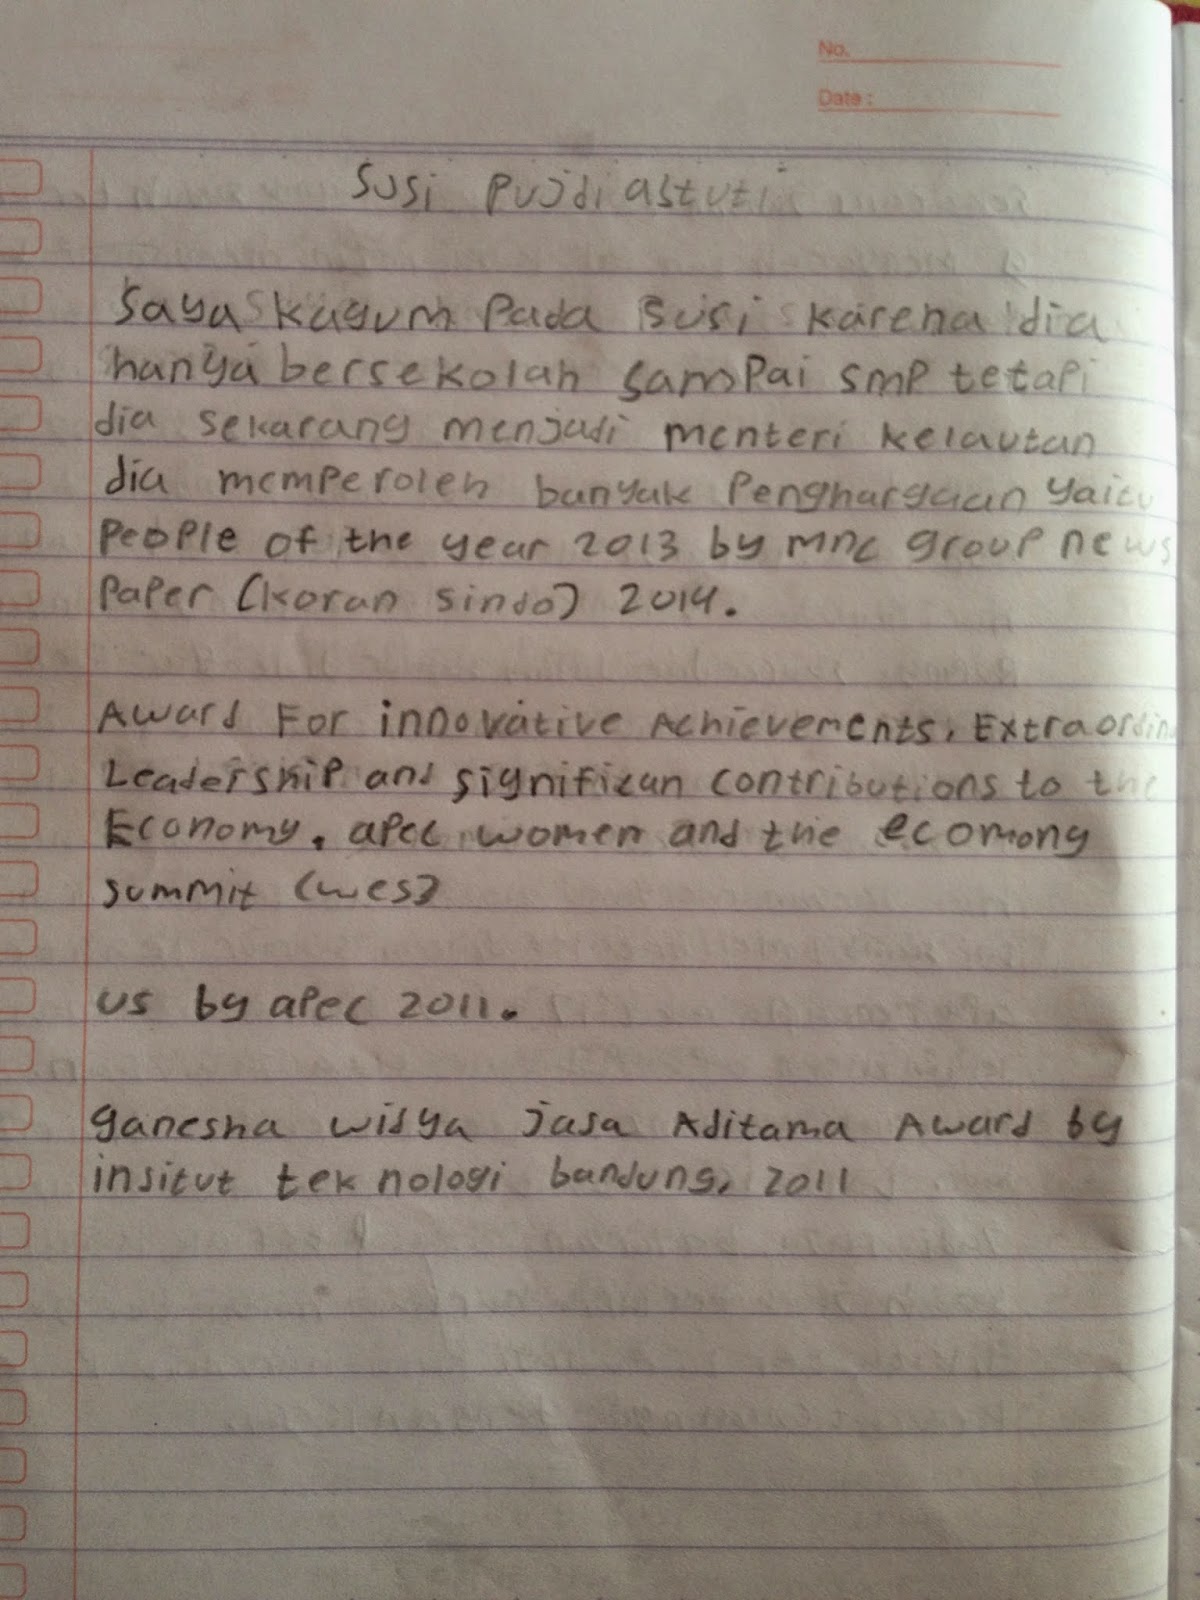 No.
Date :
Susi Pujdiastuti
Saya kagum pada Susi karena dia
hanya bersekolah sampai smp tetapi
dia sekarang menjadi menteri kelautan
dia memperoleh banyak Penghargaan yaitu
People of the year 2013 by mnc group news
Paper (koran sindo) 2014.
Award For innovative Achievements, Extraordin
Leadership and signifikan contributions to the
Economy, apec women and the ecomony
summit (wes)
us by apec 2011.
ganesha widya jasa Aditama Award by
insitut teknologi bandung, 2011